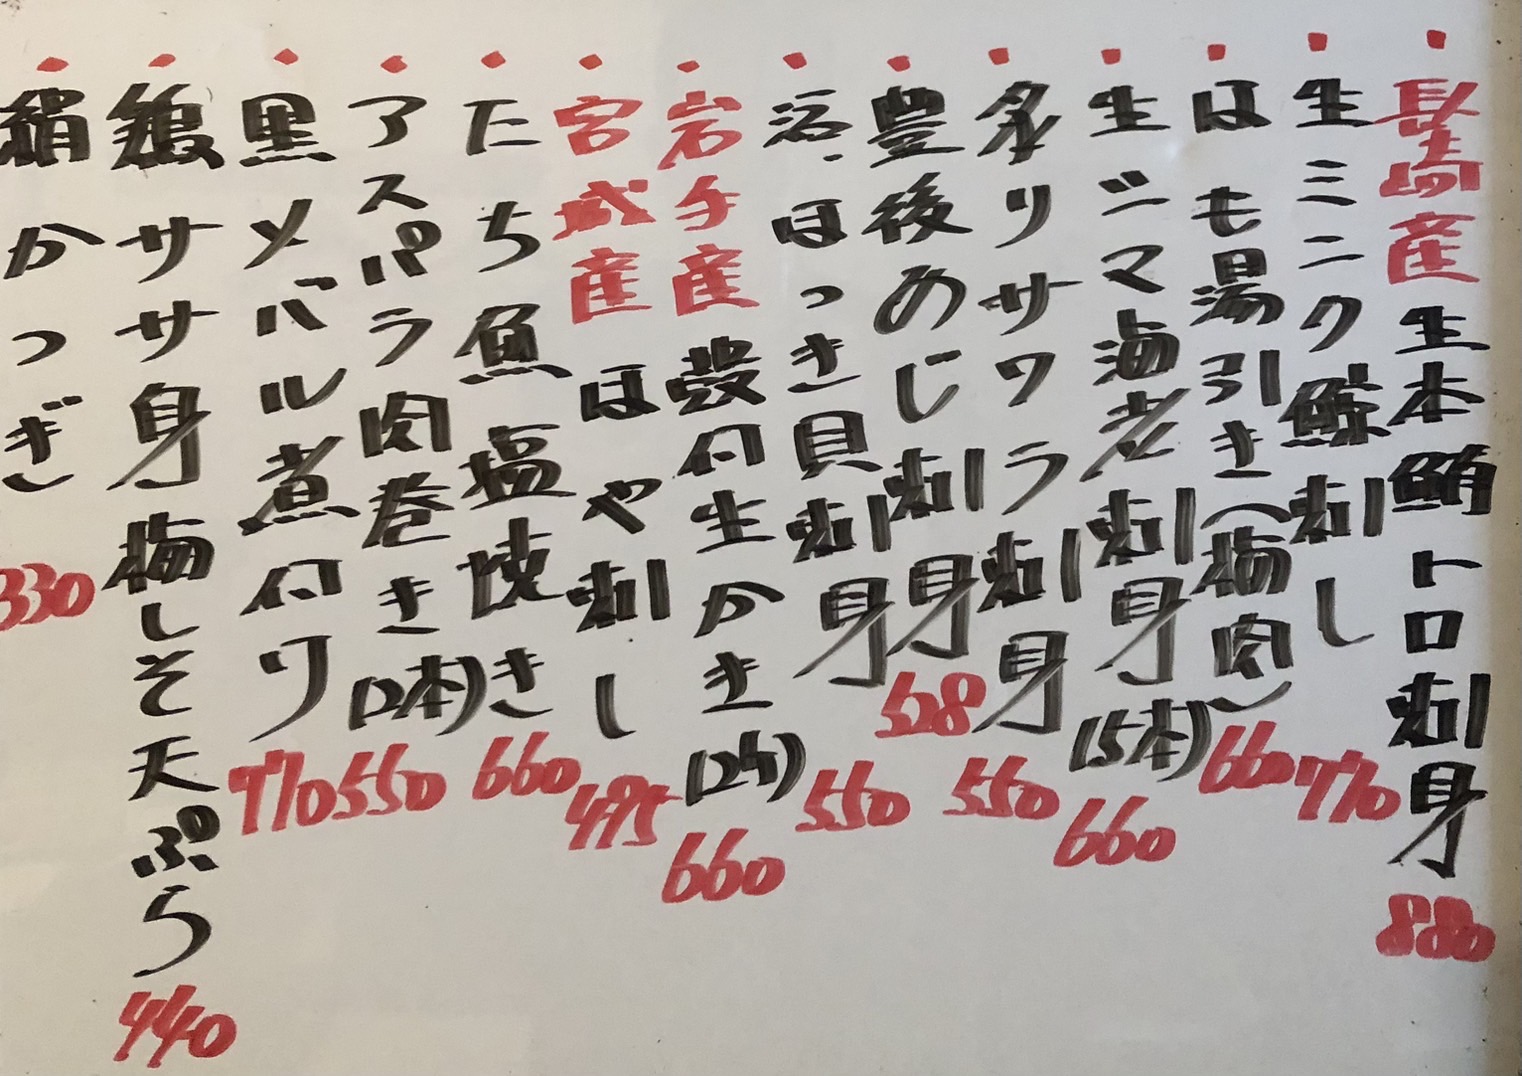 長崎産生本鮪トロ刺身 880
生ミニク鯨刺し 770
はも湯引き(梅肉) 660
生シマ海老刺身(5本) 660
炙りサワラ刺身 550
豊後あじ刺身 528
活ほっき貝刺身 550
岩手産殻付生かき(2ケ) 660
宮城産ほや刺し 495
たち魚塩焼き 660
アスパラ肉巻き(2本) 550
黒メバル煮付け 770
鶏ササ身梅しそ天ぷら 440
絹かつぎ 330